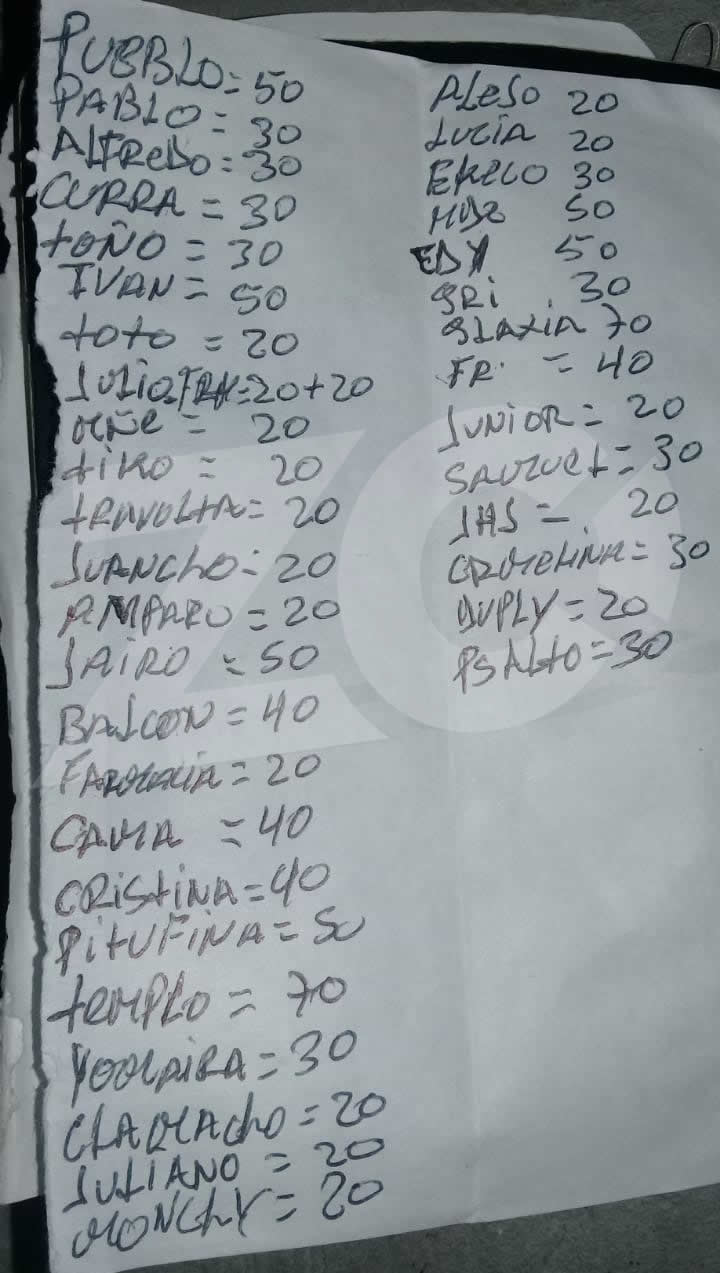 PUEBLO = 50
PABLO = 30
ALFREDO = 30
CURRA = 30
toÑO = 30
IVAN = 50
toto = 20
JULIO, FRK = 20+20
OCÑE = 20
tiKO = 20
tRAVOLtA = 20
JUANCHO = 20
AMPARO = 20
JAIRO = 50
BALCON = 40
FARMACIA = 20
CAMA = 40
CRIStINA = 40
PitUFINA = 50
tEMPLO = 70
YOMAIRA = 30
CLAMACHO = 20
JULIANO = 20
MONCHY = 20
ALESO 20
LUCIA 20
EKECO 30
50
EDY 50
GRI 30
GLAXIA 70
FR. = 40
JUNIOR = 20
30
JHS = 20
30
DUPLY = 20
PSALtO = 30
ZC